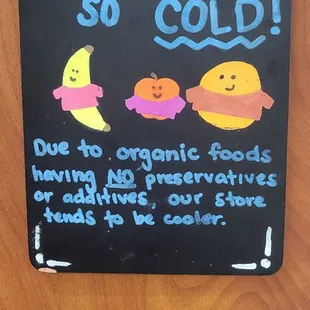 SO COLD!
Due to organic foods
having NO preservatives
or additives, our store
tends to be cooler.